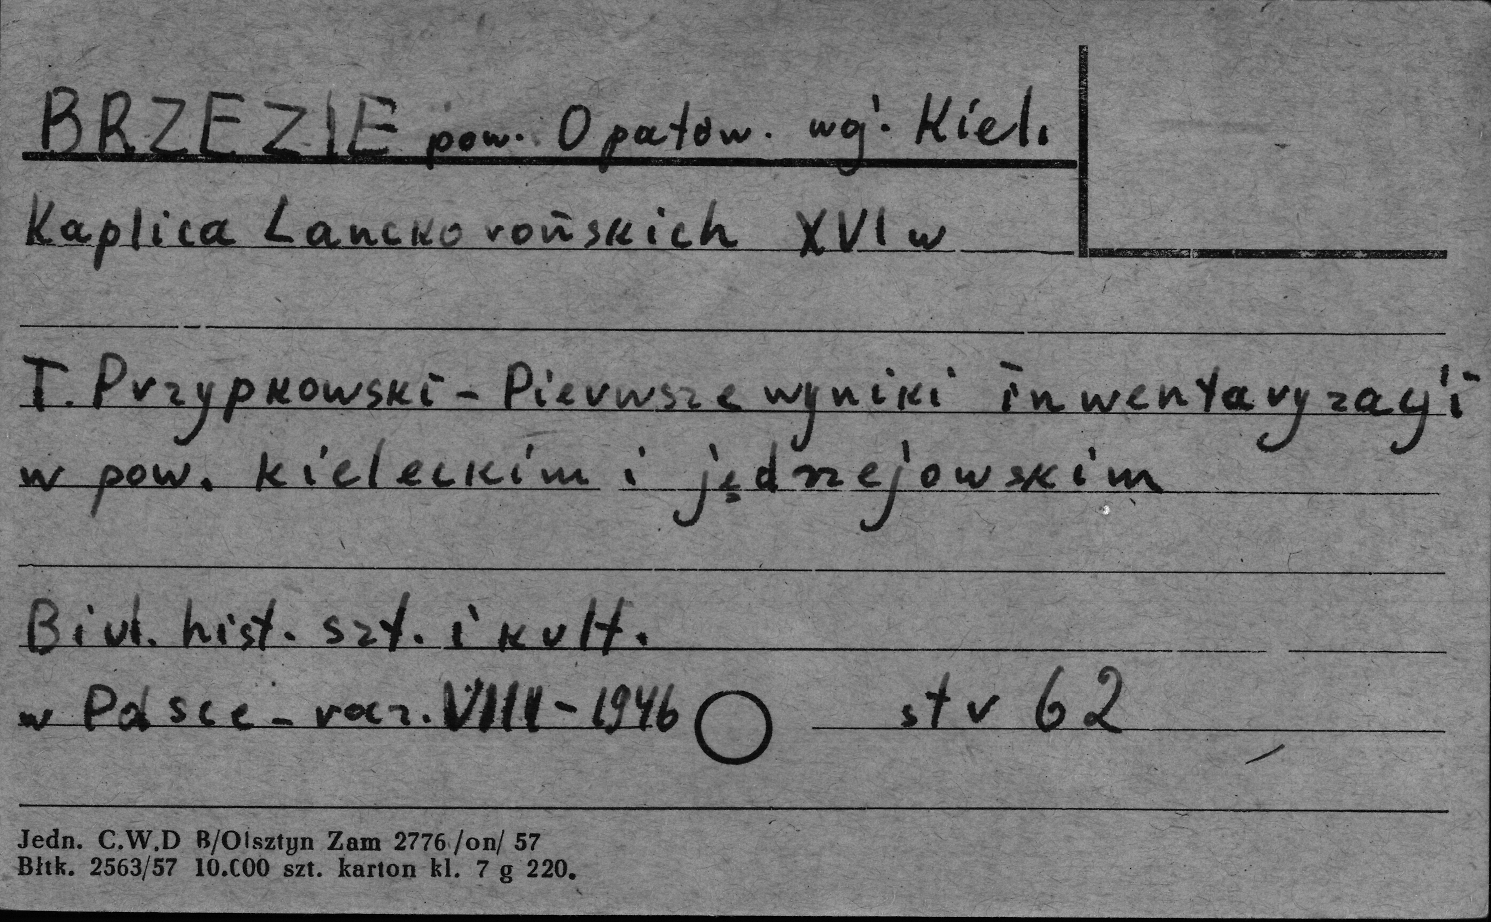 BRZEZIE pow. Opatów. woj. Kiel.
Kaplica Lanckorońskich XVI w
T. Przypkowski - Pierwsze wyniki inwentaryzacji
w pow. kieleckim i jędrzejowskim
Biul. hist. szt. i kult.
w Polsce - rocz. VIII - 1946 str 62
Jedn. C.W.D B/Olsztyn Zam 2776 /on/ 57
Błtk. 2563/57 10.000 szt. karton kl. 7 g 220.